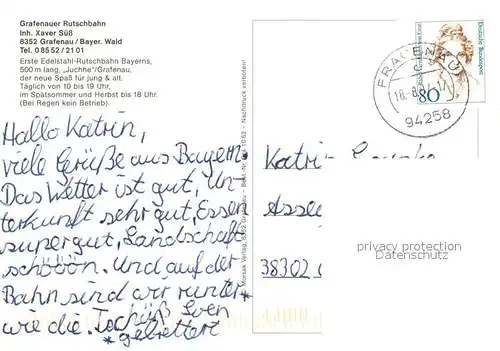 Grafenauer Rutschbahn
Inh. Xaver Süß
8352 Grafenau/Bayer. Wald
Tel. 0 85 52 / 21 01
Erste Edelstahl-Rutschbahn Bayerns,
500 m lang, „Juchhe“/Grafenau,
der neue Spaß für jung & alt.
Täglich von 10 bis 19 Uhr,
im Spätsommer und Herbst bis 18 Uhr.
(Bei Regen kein Betrieb).
Hallo Katrin,
viele Grüße aus Bayern.
Das Wetter ist gut, Un-
terkunft sehr gut, Essen
supergut, Landschaft
schööön. Und auf der
Bahn sind wir runter*
wie die. Tschüß Sven
*gebrettert
Morsak Verlag, 8352 Grafenau – Best.-Nr. 10 62 – Nachdruck verboten!
Deutsche Bundespost
80
FRAUENAU
18.-8.
94258
Katrin
38302
privacy protection
Datenschutz